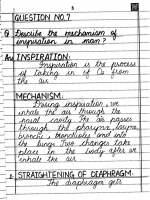 5
QUESTION NO.7
Q Describe the mechanism of
inspiration in man?
Ans INSPIRATION:
Inspiration is the process
of taking in of O₂ from
the air
MECHANISM:
During inspiration, we
inhale the air through the
nasal cavity. The air passes
through the pharynx, larynx,
bronchi, bronchioles and into
the lungs. Two changes take
place in the body after we
inhale the air.
1- STRAIGHTENING OF DIAPHRAGM:
The diaphragm gets